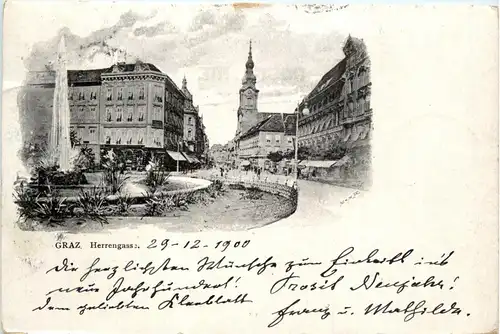 GRAZ Herrengasse. 29-12-1900
Die herzlichsten Wünsche zum Eintritt ins
neue Jahrhundert! Prosit Neujahr!
dem geliebten Kleeblatt Franz u. Mathilde.